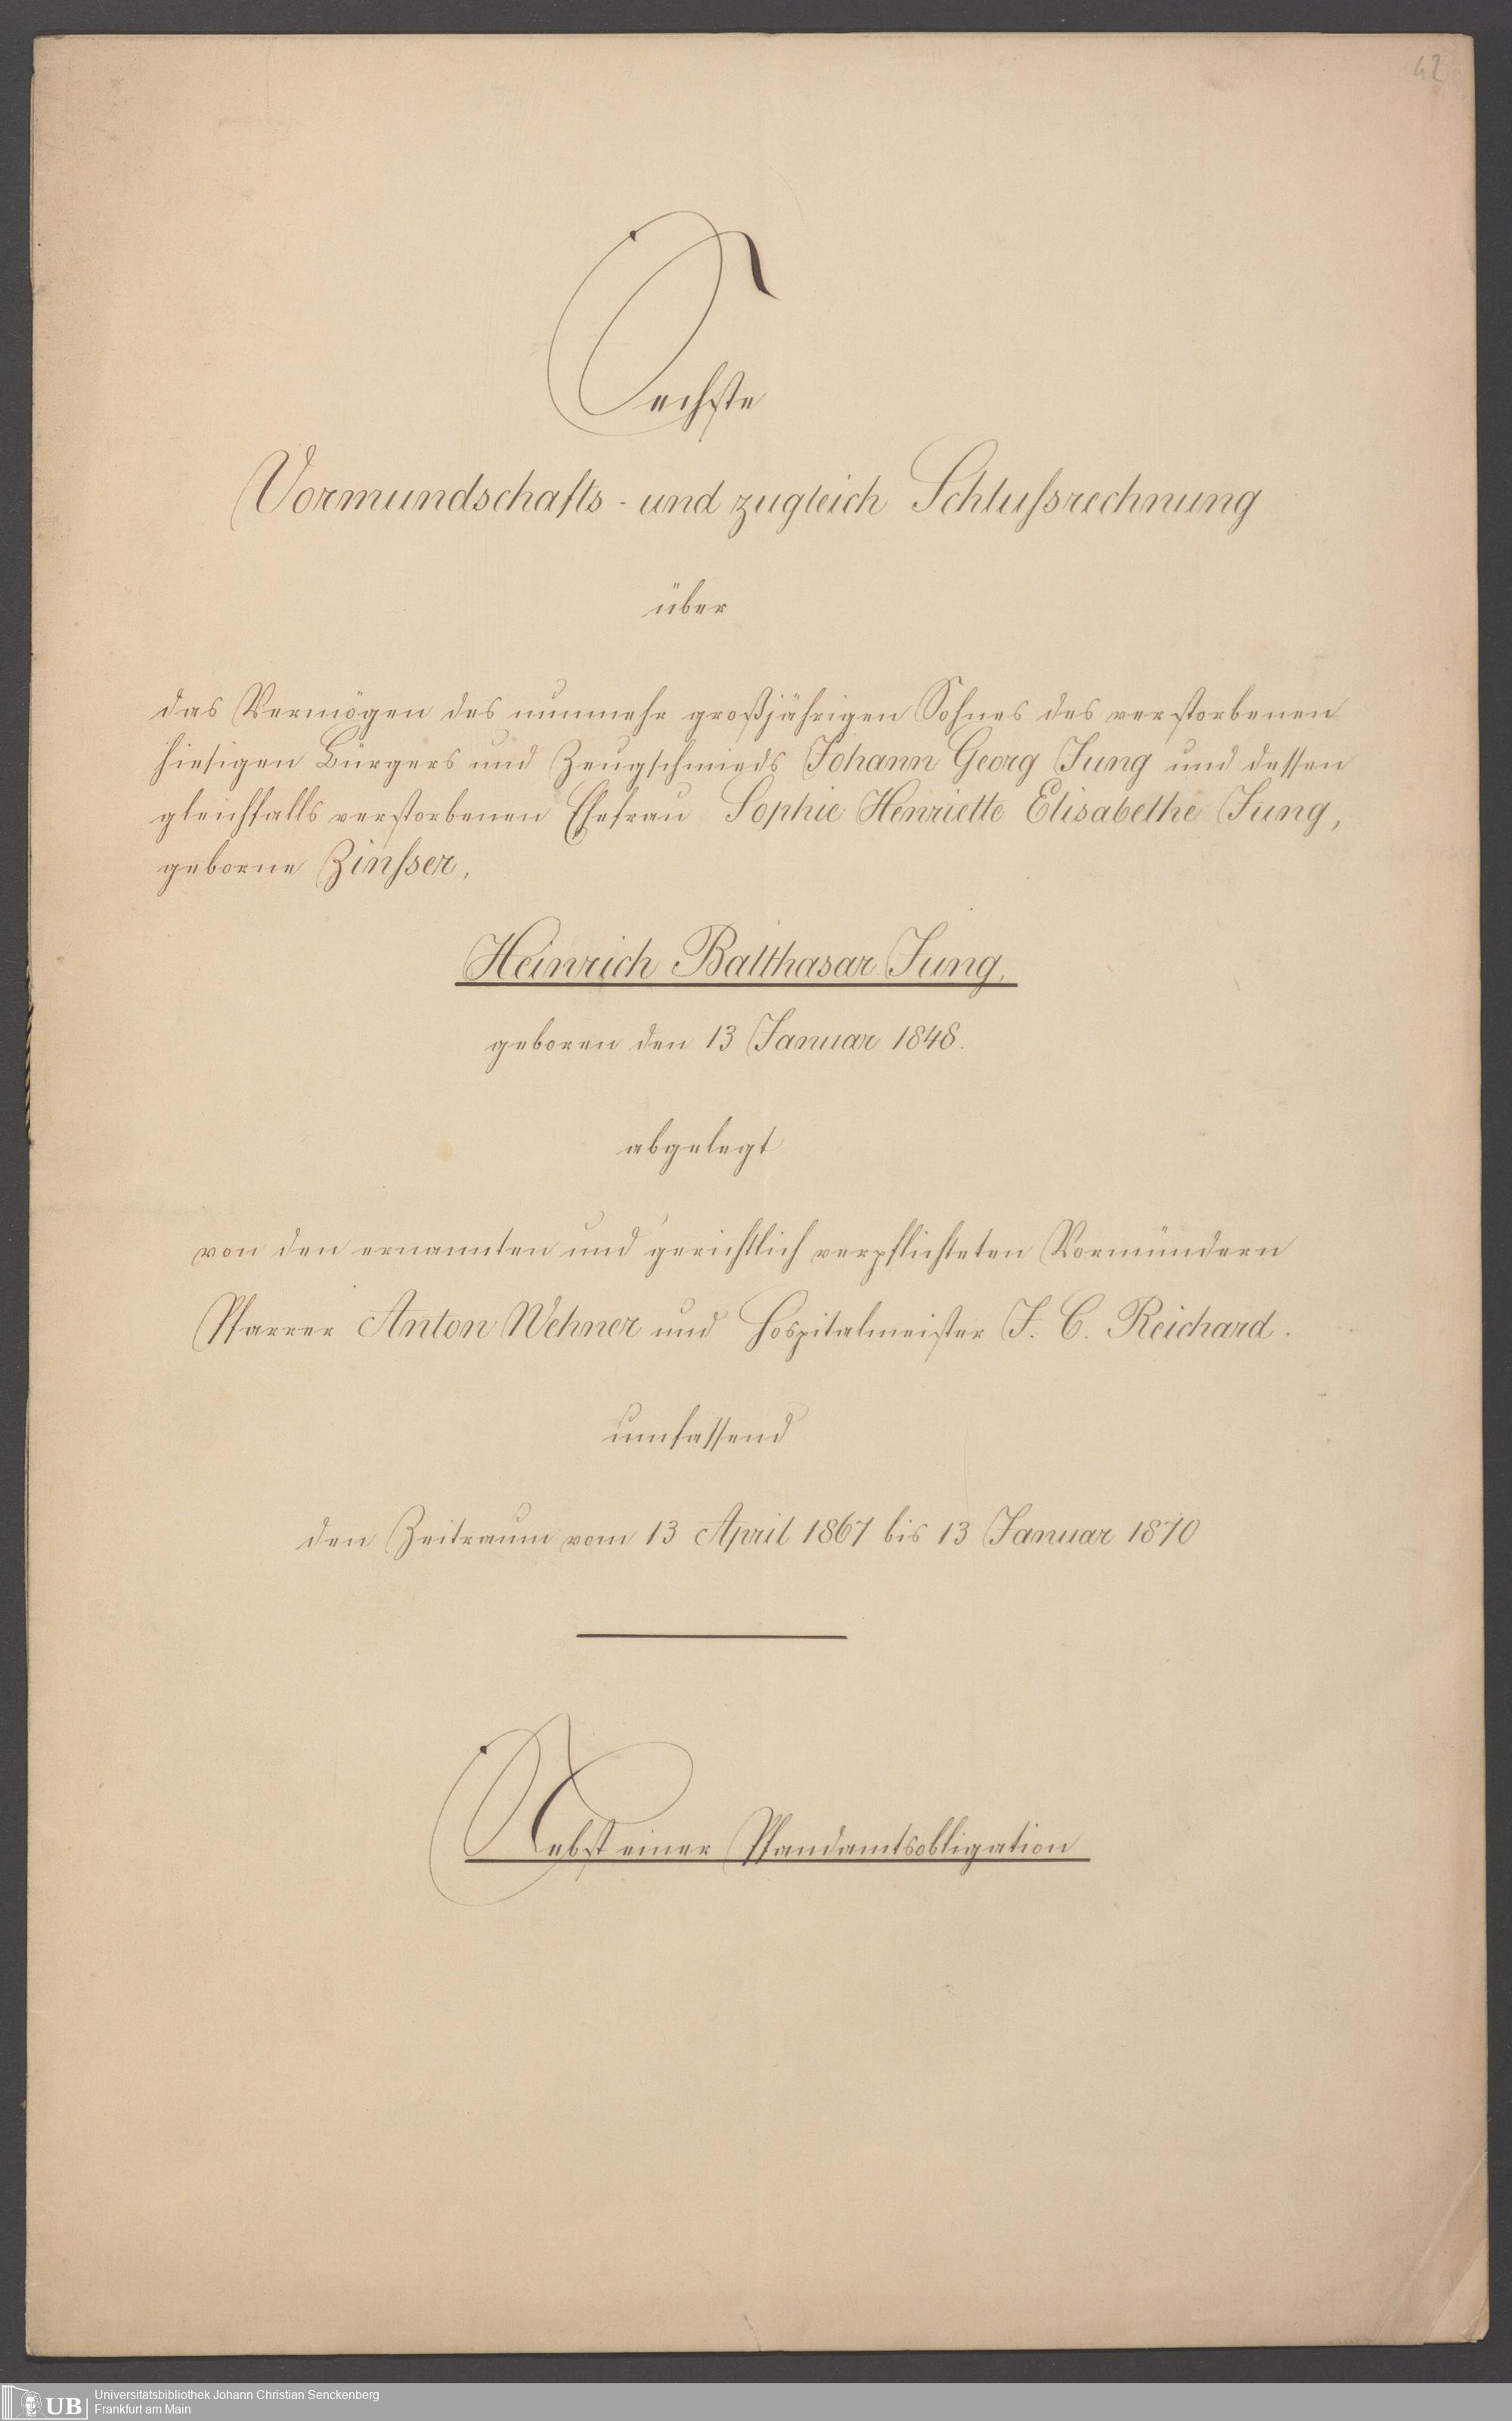 42
Sechste
Vormundschafts- und zugleich Schlußrechnung
über
das Vermögen des nunmehr großjährigen Sohnes des verstorbenen
hiesigen Bürgers und Zeugschmieds Johann Georg Jung und dessen
gleichfalls verstorbenen Ehefrau Sophie Henriette Elisabethe Jung,
geborne Zinßer,
Heinrich Balthasar Jung,
geboren den 13 Januar 1848.
abgelegt
von den ernannten und gerichtlich verpflichteten Vormündern
Pfarrer Anton Wehner und Hospitalmeister J. C. Reichard.
umfassend
den Zeitraum vom 13 April 1867 bis 13 Januar 1870
Nebst einer Pfandamtsobligation
UB
Universitätsbibliothek Johann Christian Senckenberg
Frankfurt am Main